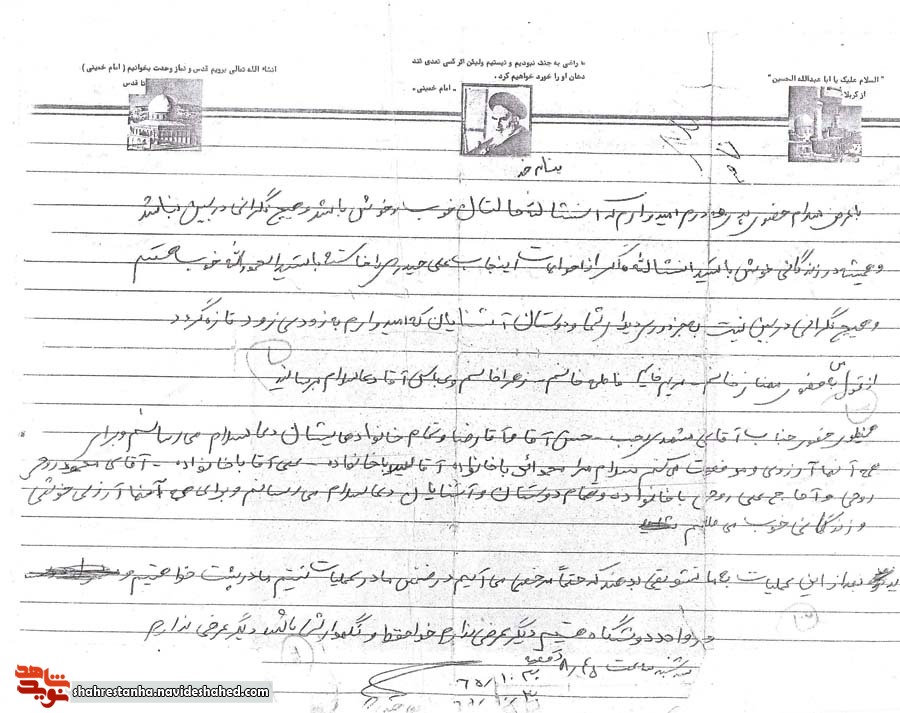 انشاء الله تعالی برویم قدس و نماز وحدت بخوانیم ( امام خمینی )
تا قدس
ما راضی به جنگ نبودیم و نیستیم ولیکن اگر کسی تعدی کند
دهان او را خورد خواهیم کرد .
- امام خمینی -
" السلام علیک یا ابا عبدالله الحسین "
از کربلا
بنام خدا
با عرض سلام حضور پدر و مادرم امیدوارم که انشااله حالتان خوب و خوش باشد و هیچ نگرانی در بین نباشد
و همیشه در زندگانی خوش باشید انشااله و اگر از احوالات اینجانب علی حیدر خواسته باشید الحمدالله خوب هستم
و هیچ نگرانی در بین نیست به جز دوری دیدار شما و دوستان آشنایان که امیدوارم به زودی زود تازه گردد
از قول من حضور خانم - مریم خانم فاطمه خانم - زهرا خانم و عباس آقا دعا سلام برسانید
همینطور حضور جناب آقای مشهدی رجب - حسن آقا و آقا رضا و تمام خانواده هایشان دعا سلام می رسانم و برای
همی آنها آرزوی موفقیت می کنم سلام مرا به با خانواده آقا با خانواده - علی آقا با خانواده - آقای محمود روحی
روحی و آقا حج علی روحی با خانواده و تمام دوستان و آشنایان دعا سلام می رسانم و برای همی آنها آرزوی خوشی
و زندگانی خوب می نمایم
بعد از این عملیات به ما تشویقی بدهند که حتماً مرخصی می آییم در ضمن ما در عملیات نیستیم ما در پشت خواهیم
در واحد دوشگا هستیم دیگر عرضی ندارم خداحافظ و نگهدار شما باشد دیگر عرضی ندارم
شنبه ساعت ۸/۴۵ دقیقه
۶۵/۱۰/۲۰
شاهد
نوید
shahrestanha.navideshahed.com